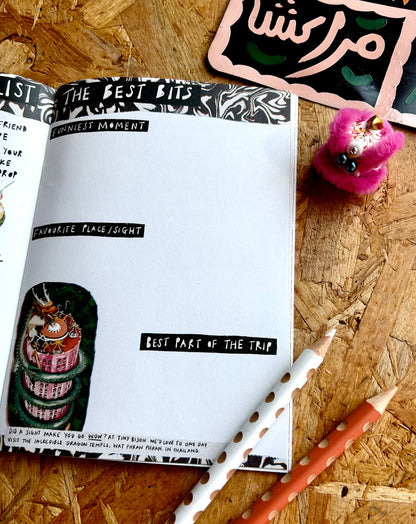 مراكش
LIST
THE BEST BITS
FRIEND
YOUR
DROP
FUNNIEST MOMENT
FAVOURITE PLACE/SIGHT
BEST PART OF THE TRIP
DID A SIGHT MAKE YOU GO WOW? AT TINY BISON WE'D LOVE TO ONE DAY
VISIT THE INCREDIBLE DRAGON TEMPLE, WAT PHRAN PHRAM, IN THAILAND.